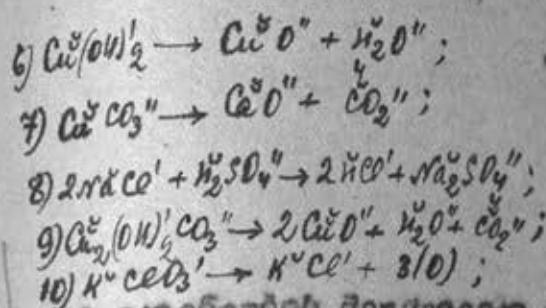 6) Cŭ(OH)'₂ → CŭO'' + H̆₂O'';
7) Că CO₃'' → CăO'' + C̆O₂'';
8) 2NăCl' + H̆₂SO₄'' → 2H̆Cl' + Nă₂SO₄'';
9) Cŭ₂(OH)'₂CO₃'' → 2CŭO'' + H̆₂O'' + C̆O₂'';
10) K̆ ClO₃' → K̆ Cl' + 3(O);